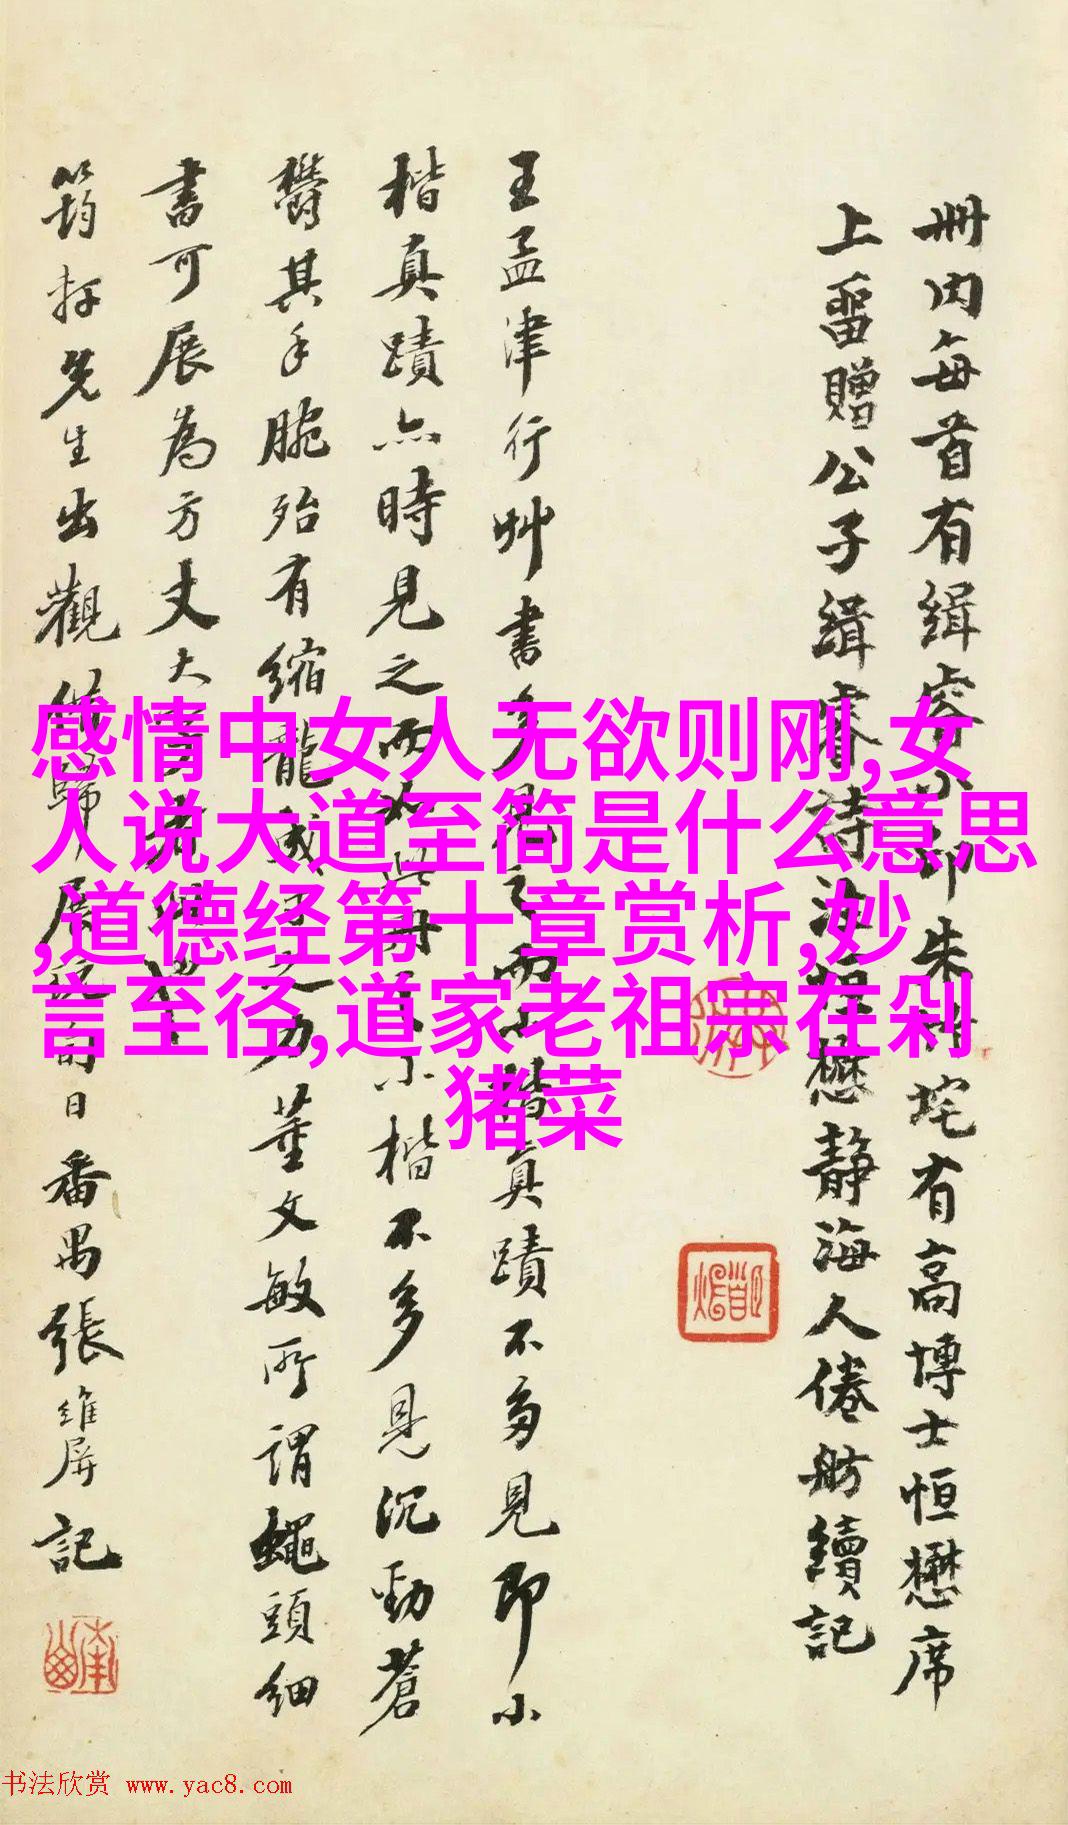 感情中女人无欲则刚,女
人说大道至简是什么意思
,道德经第十章赏析,妙
言至径,道家老祖宗在剁
猪菜
冊内每首有緝
朱 垞有高博士恒懋席
上畱贈公子緝睿詩 懋靜海人倦舫續記
王孟津行艸書多見之而小楷真蹟不多見即小
楷真蹟亦時見之而 小楷不多見沉勁蒼
鬱其手腕殆有縮龍 之力董文敏所謂蠅頭細
書可展為方丈大
筠 先生出觀 歸展 日番禺張維屏記
书法欣赏 www.yac8.com